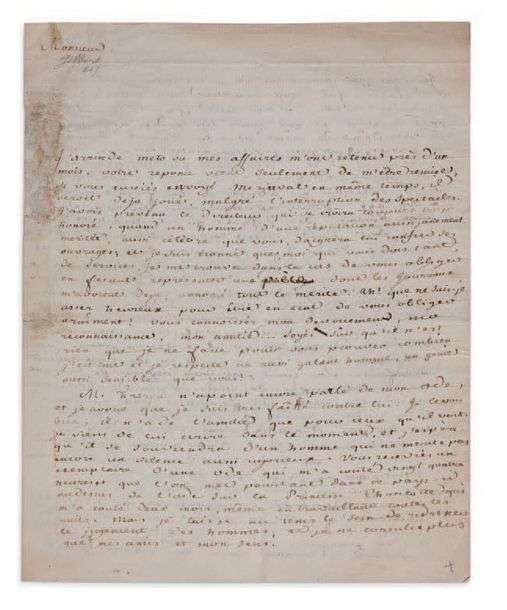 Monsieur
Gilbert
J'arrive de metz où mes affaires m'ont retenu près d'un
mois. votre reponse vient seulement de m'être remise,
si vous eussiés envoyé Merinval en même temps, il
seroit déja joué, malgré l'interruption des spectacles.
J'avois prévenu le Directeur qui se croira toujours très
honoré, quand un homme d'une réputation aussi justement
meritée, aussi célèbre que vous, daignera lui confier ses
ouvrages; et je suis étonné que moi qui vous dois tant
de services, je me trouve dans le cas de vous obliger
en faisant représenter une pièce dont les journaux
m'avoient déja annoncé tout le mérite. Ah! que ne suis-je
assez heureux pour être en état de vous obliger
vraiment! vous connoissés mon dévouement, ma
reconnaissance, mon amitié... soyés sur qu'il n'est
rien que je ne fasse pour vous prouver combien
j'estime et je respecte un aussi galant homme, un génie
aussi sensible que vous.
M. Freron n'a point encore parlé de mon ode,
et j'avoue que je suis très faché contre lui. Je le vois
bien, il n'a de l'amitié que pour ceux qu'il voit.
je viens de lui écrire dans le moment, et j'espère
qu'il se souviendra d'un homme qui ne mérite pas
encore un silence aussi injurieux. Vous recevrés un
exemplaire d'une ode qui m'a couté vingt quatre
heures et que l'on met pourtant dans ce pays
au dessus de l'ode sur la Princesse Charlotte qui
m'a couté deux mois, même en travaillant toutes les
nuits. Mais je laisse au tems le soin de
le jugement des hommes, et je ne consulte plus
que mes amis et mon sens.